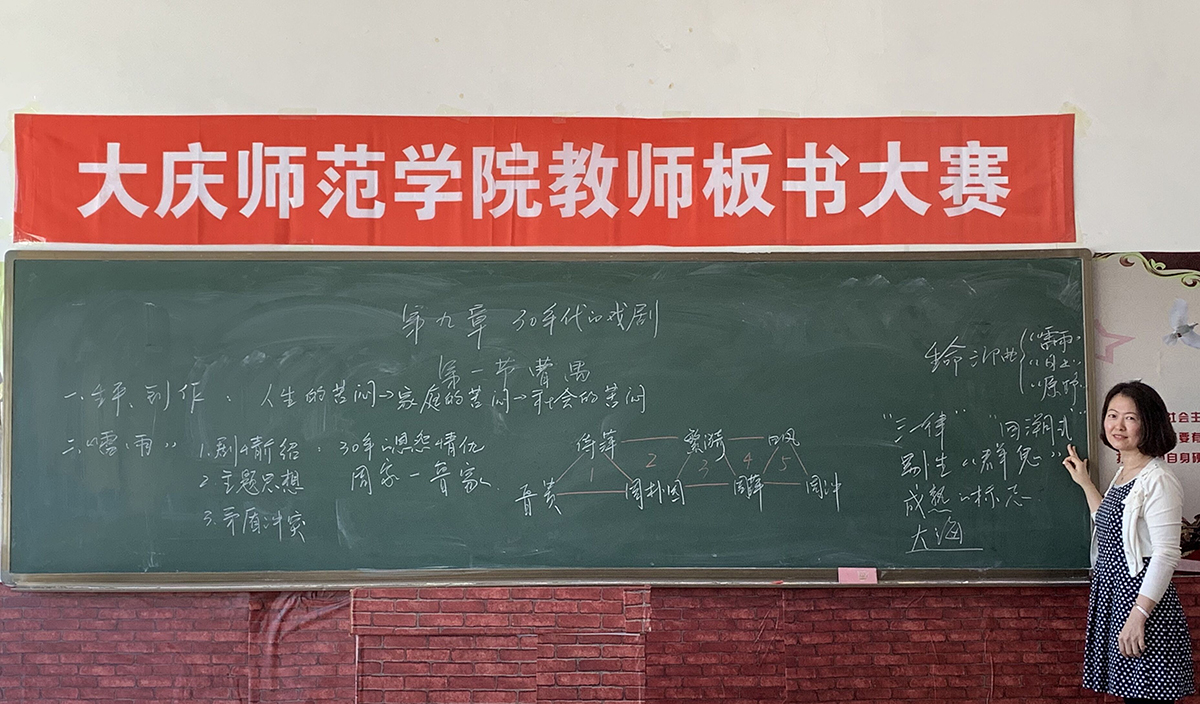 大庆师范学院教师板书大赛
第九章 30年代的戏剧
第一节 曹禺
一、生平、创作：人生的苦闷→家庭的苦闷→社会的苦闷
二、《雷雨》 1.剧情介绍：30年的恩怨情仇
周家－鲁家
2.主题思想
3.矛盾冲突
侍萍 繁漪 四凤
1 2 3 4 5
鲁贵 周朴园 周萍 周冲
生命三部曲
《雷雨》
《日出》
《原野》
"三一律" "回溯式"
剧坐"群鬼"
成熟的标志
大海
自身